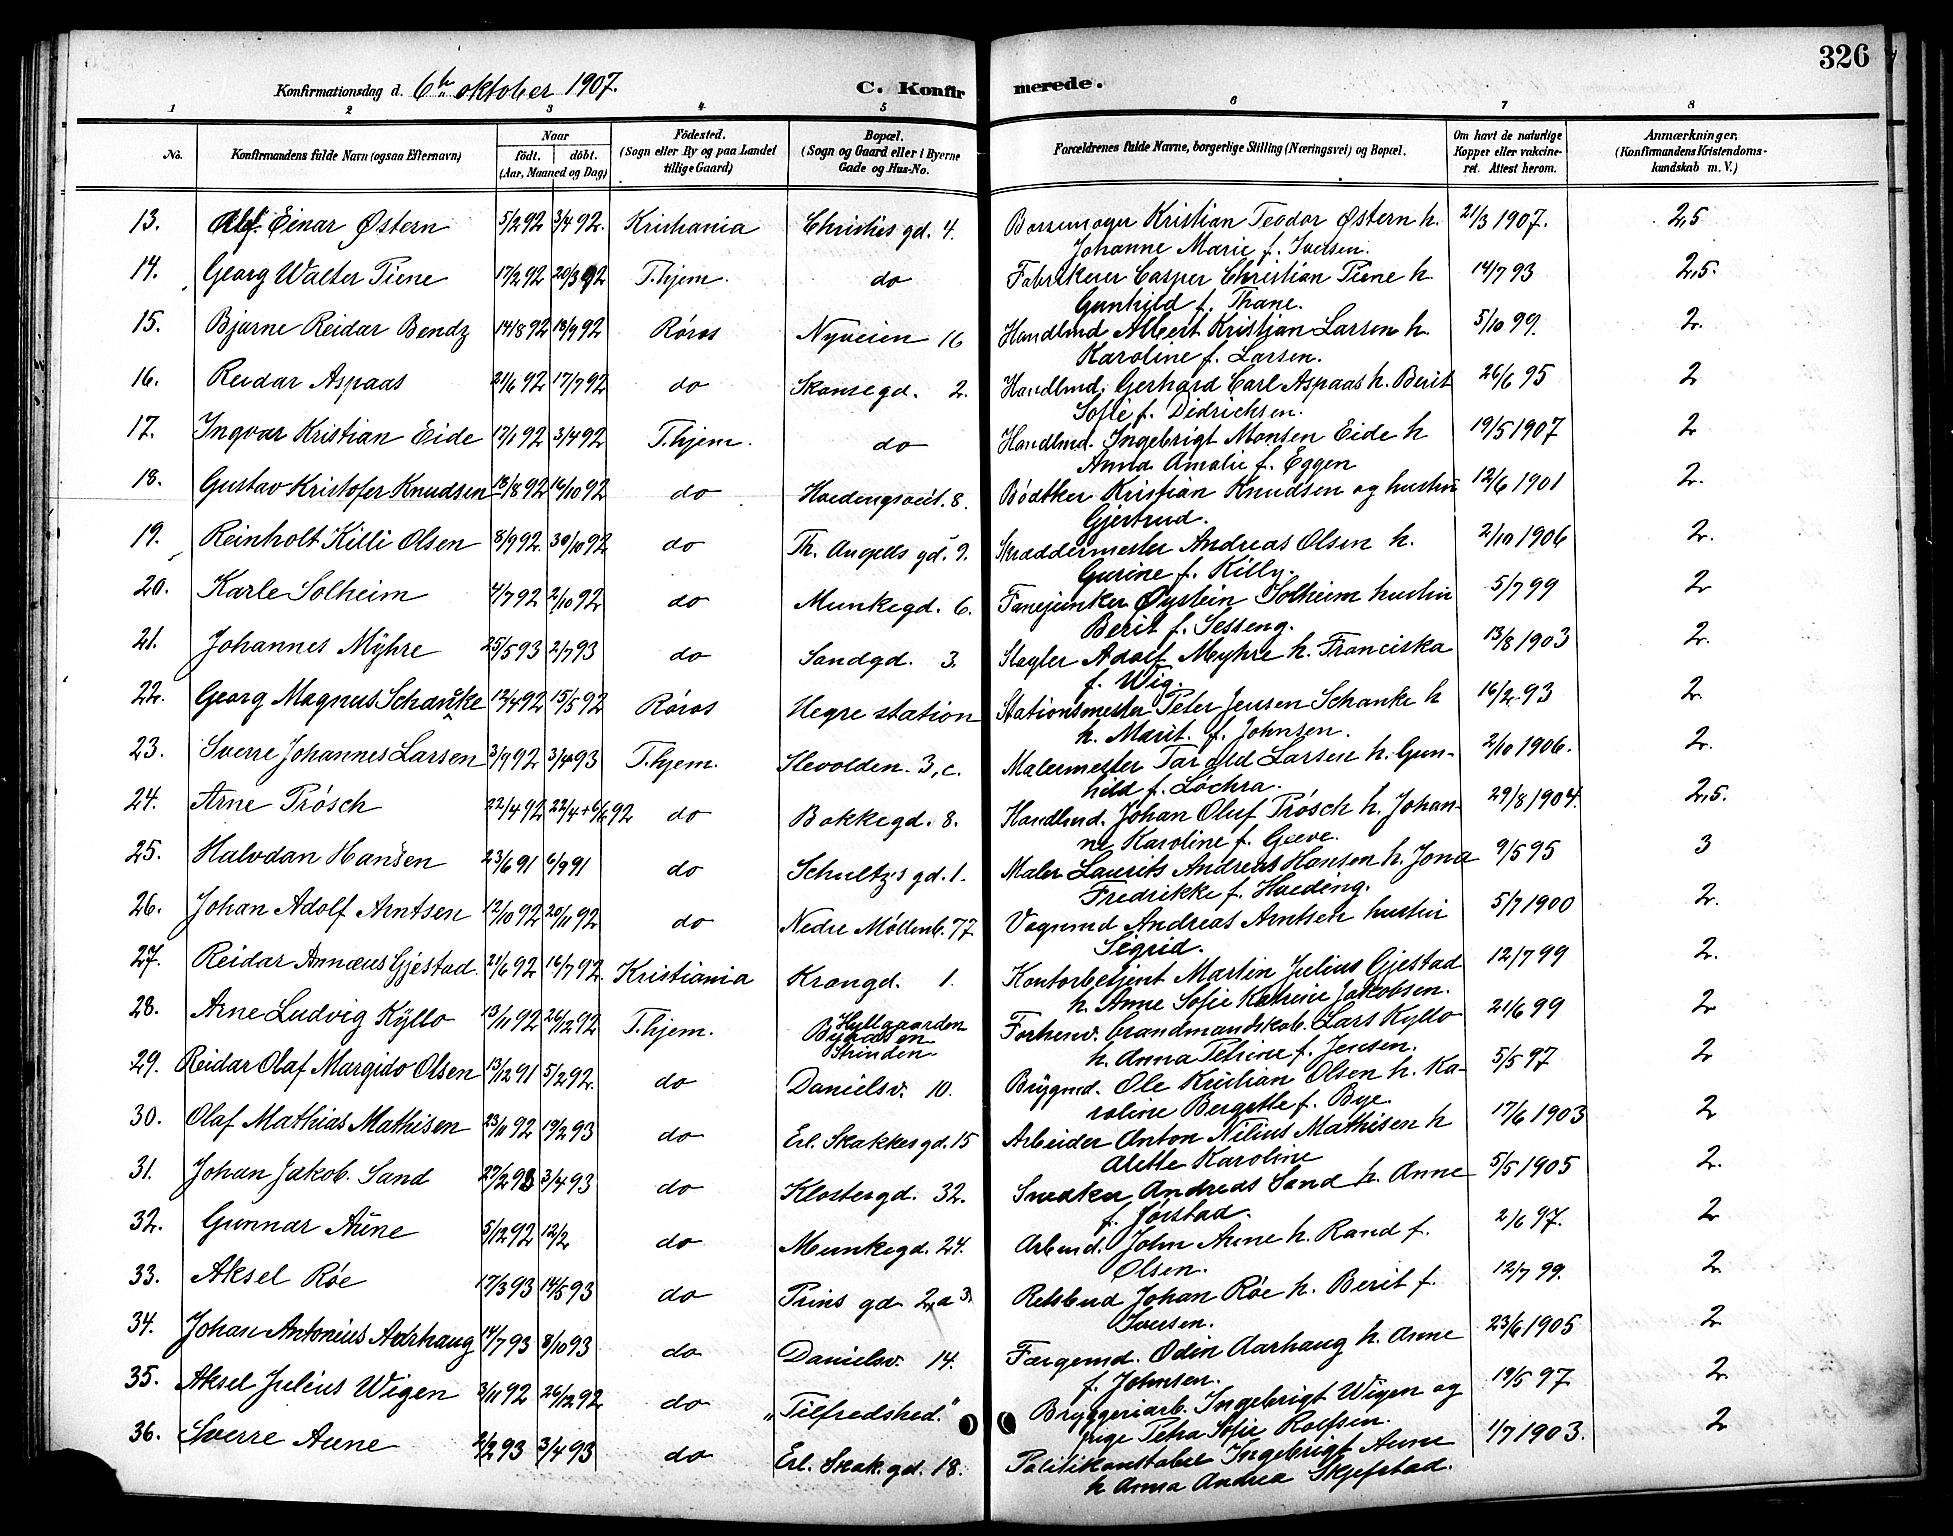 326
Konfirmationsdag d. 6te oktober 1907.
C. Konfirmerede.
1 2 3 4 5 6 7 8
No. Konfirmandens fulde Navn (ogsaa Efternavn) Naar født. døbt. (Aar, Maaned og Dag) Fødested. (Sogn eller By og paa Landet tillige Gaard) Bopæl. (Sogn og Gaard eller i Byerne Gade og Hus-No. Forældrenes fulde Navne, borgerlige Stilling (Næringsvei) og Bopæl. Om havt de naturlige Kopper eller vakcineret. Attest herom. Anmærkninger. (Konfirmandens Kristendomskundskab m. V.)
13. Alf Einar Østern 5/2 92 3/4 92. Kristiania Christies gd. 4. Kristian Teodor Østern h. 21/3 1907. 2,5
Johanne Marie f. Iversen.
14. Georg Walter Piene 17/2 92 20/3 92 T.hjem. do Fabrikeier Casper Christian Piene h 14/7 93 2,5.
Gunhild f. Thane.
15. Bjarne Reidar Bendz 14/8 92 18/9 92 Røros Nyveien 16 Handlmd Albert Kristjan Larsen h. 5/10 99. 2.
Karoline f. Larsen.
16. Reidar Aspaas 21/6 92 17/7 92 do Skansegd. 2. Handlmd. Gerhard Carl Aspaas h. Berit 26/6 95 2
Sofie f. Didrichsen.
17. Ingvar Kristian Eide 17/1 92 3/4 92 T.hjem. do Handlmd. Ingebrigt Monsen Eide h 19/5 1907 2
Anna Amalie f. Eggen
18. Gustav Kristofer Knudsen 18/8 92 16/10 92 do Hoedingsveit. 8. Bødtker Kristian Knudsen og hustru 12/6 1901 2.
Gjertrud.
19. Reinholt Killi Olsen 8/9 92. 30/10 92 do Th. Angells gd. 9. Skræddermester Andreas Olsen h. 2/10 1906 2.
Gurine f. Killy.
20. Karle Solheim 4/7 92 2/10 92 do Munkegd. 6. Fanejunker Øystein Solheim hustru 5/7 99 2
Berit f. Sesseng.
21. Johannes Myhre 25/5 93 2/7 93 do Sandgd. 3. Slagter Adolf Myhre h. Franciska 13/8 1903 2.
f. Wig.
22. Georg Magnus Schanke 12/4 92 15/5 92 Røros Hegre station Stationsmester Peter Jensen Schanke h 16/2 93 2.
h. Marit. f. Johnsen.
23. Sverre Johannes Larsen 3/9 92 3/4 93 T.hjem. Ilevolden. 3, c. Malermester Tarald Larsen h. Gun- 2/10 1906. 2.
hild f. Lochra.
24. Arne Prøsch 22/4 92 22/4 + 6/6 92 do Bakkegd. 8. Handlmd. Johan Oluf Prøsch h. Johan- 29/8 1904. 2,5.
ne Karoline f. Greve.
25. Halvdan Hansen 23/6 91 6/9 91 do Schultz's gd. 1. Maler Laurits Andreas Hansen h. Jona 9/5 95 3
Fredrikke f. Hoeding.
26. Johan Adolf Arntsen 12/10 92 20/11 92 do Nedre Møllenb. 77. Vognmd Andreas Arntsen hustru 5/7 1900 2.
Sigrid.
27. Reidar Annæus Gjestad. 21/6 92 16/7 92. Kristiania Krangd. 1. Kontorbetjent Martin Julius Gjestad 12/7 99 2.
h. Anne Sofie Katrine Jakobsen.
28. Arne Ludvig Kyllo 13/11 92 26/12 92 T.hjem. Hyllgaarden Byaasen Strinden Forhenv. brandmandskab. Lars Kyllo 21/6 99 2
h. Anna Petrine f. Jensen.
29. Reidar Olaf Margido Olsen 13/12 91 5/2 92. do Danielsv. 10. Brygmd. Ole Kristian Olsen h. Ka- 5/5 97 2
roline Bergette f. Bye.
30. Olaf Mathias Mathisen 23/11 92 19/2 93 do Erl. Skakkes gd. 15 Arbeider Anton Nilius Mathisen h 17/6 1903 2
Alette Karoline
31. Johan Jakob. Sand 27/2 93 3/4 93 do Klostergd. 32. Snedker Andreas Sand h. Anne 5/5 1905 2.
f. Jørstad.
32. Gunnar Aune 5/12 92 12/2 do Munkegd. 24. Arbmd. John Aune h. Rand f. 2/6 97. 2
Olsen.
33. Aksel Røe 17/3 93 14/5 93 do Prins gd. 2, a 3. Retsbud Johan Røe h. Berit f. 12/7 99. 2
Iversen.
34. Johan Antonius Aarhaug 14/7 93 8/10 93 do Danielsv. 14. Færgemd. Odin Aarhaug h. Anne 23/6 1905 2
f. Johnsen.
35. Aksel Julius Wigen 3/11 92 26/12 92 do „Tilfredshed." Bryggeriarb. Ingebrigt Wigen og 19/5 97 2
pige Petra Sofie Rolfsen.
36. Sverre Aune 2/2 93 3/4 93 do Erl. Skak. gd. 18. Politikonstabel Ingebrigt Aune 1/7 1903. 2
h Anna Andrea Skjefstad.